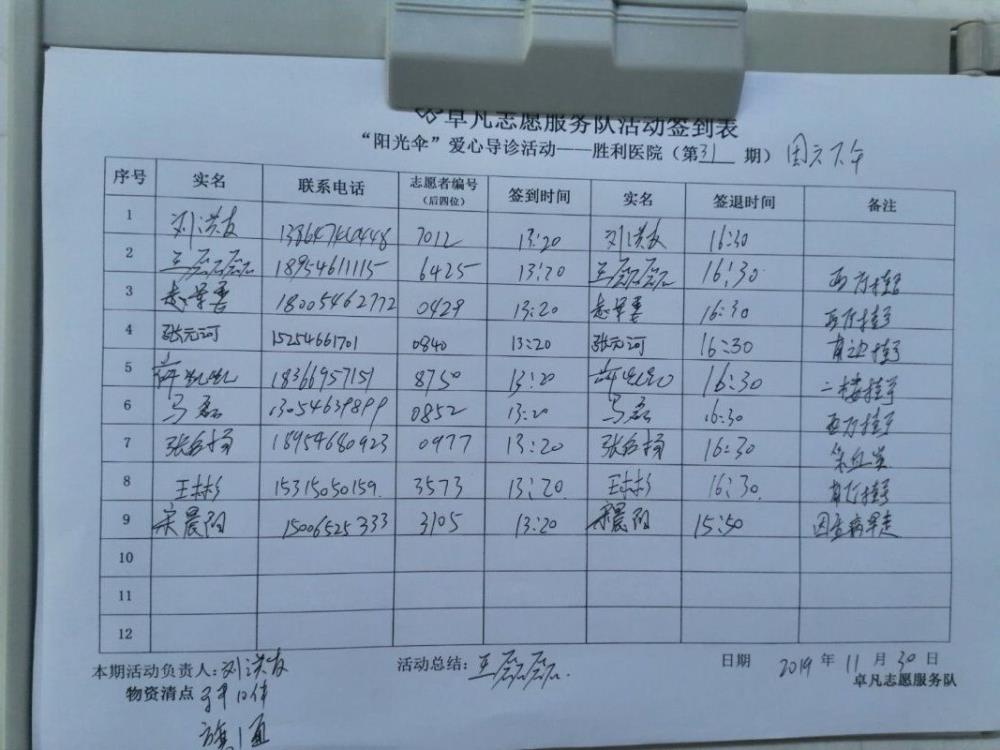 卓凡志愿服务队活动签到表
“阳光伞”爱心导诊活动——胜利医院（第31期） 周六下午
序号 实名 联系电话 志愿者编号（后四位） 签到时间 实名 签退时间 备注
1 刘洪友 7012 13:20 刘洪友 16:30
2 王磊磊 18954611115 6425 13:20 王磊磊 16:30 西厅挂号
3 18005462772 0429 13:20 16:30 西厅挂号
4 张元河 15254661701 0840 13:20 张元河 16:30 挂号
5 薛 18366957151 8750 13:20 薛 16:30 二楼挂号
6 马磊 13054639899 0852 13:20 马磊 16:30 西厅挂号
7 张 18954680923 0977 13:20 张 16:30 采血室
8 王彬彬 15315050159 3573 13:20 王彬彬 16:30 挂号
9 宋晨阳 15006525333 3105 13:20 宋晨阳 15:50 因查病早走
10
11
12
本期活动负责人：刘洪友 活动总结：王磊磊 日期 2019年11月30日
物资清点 卓凡志愿服务队
旗1面